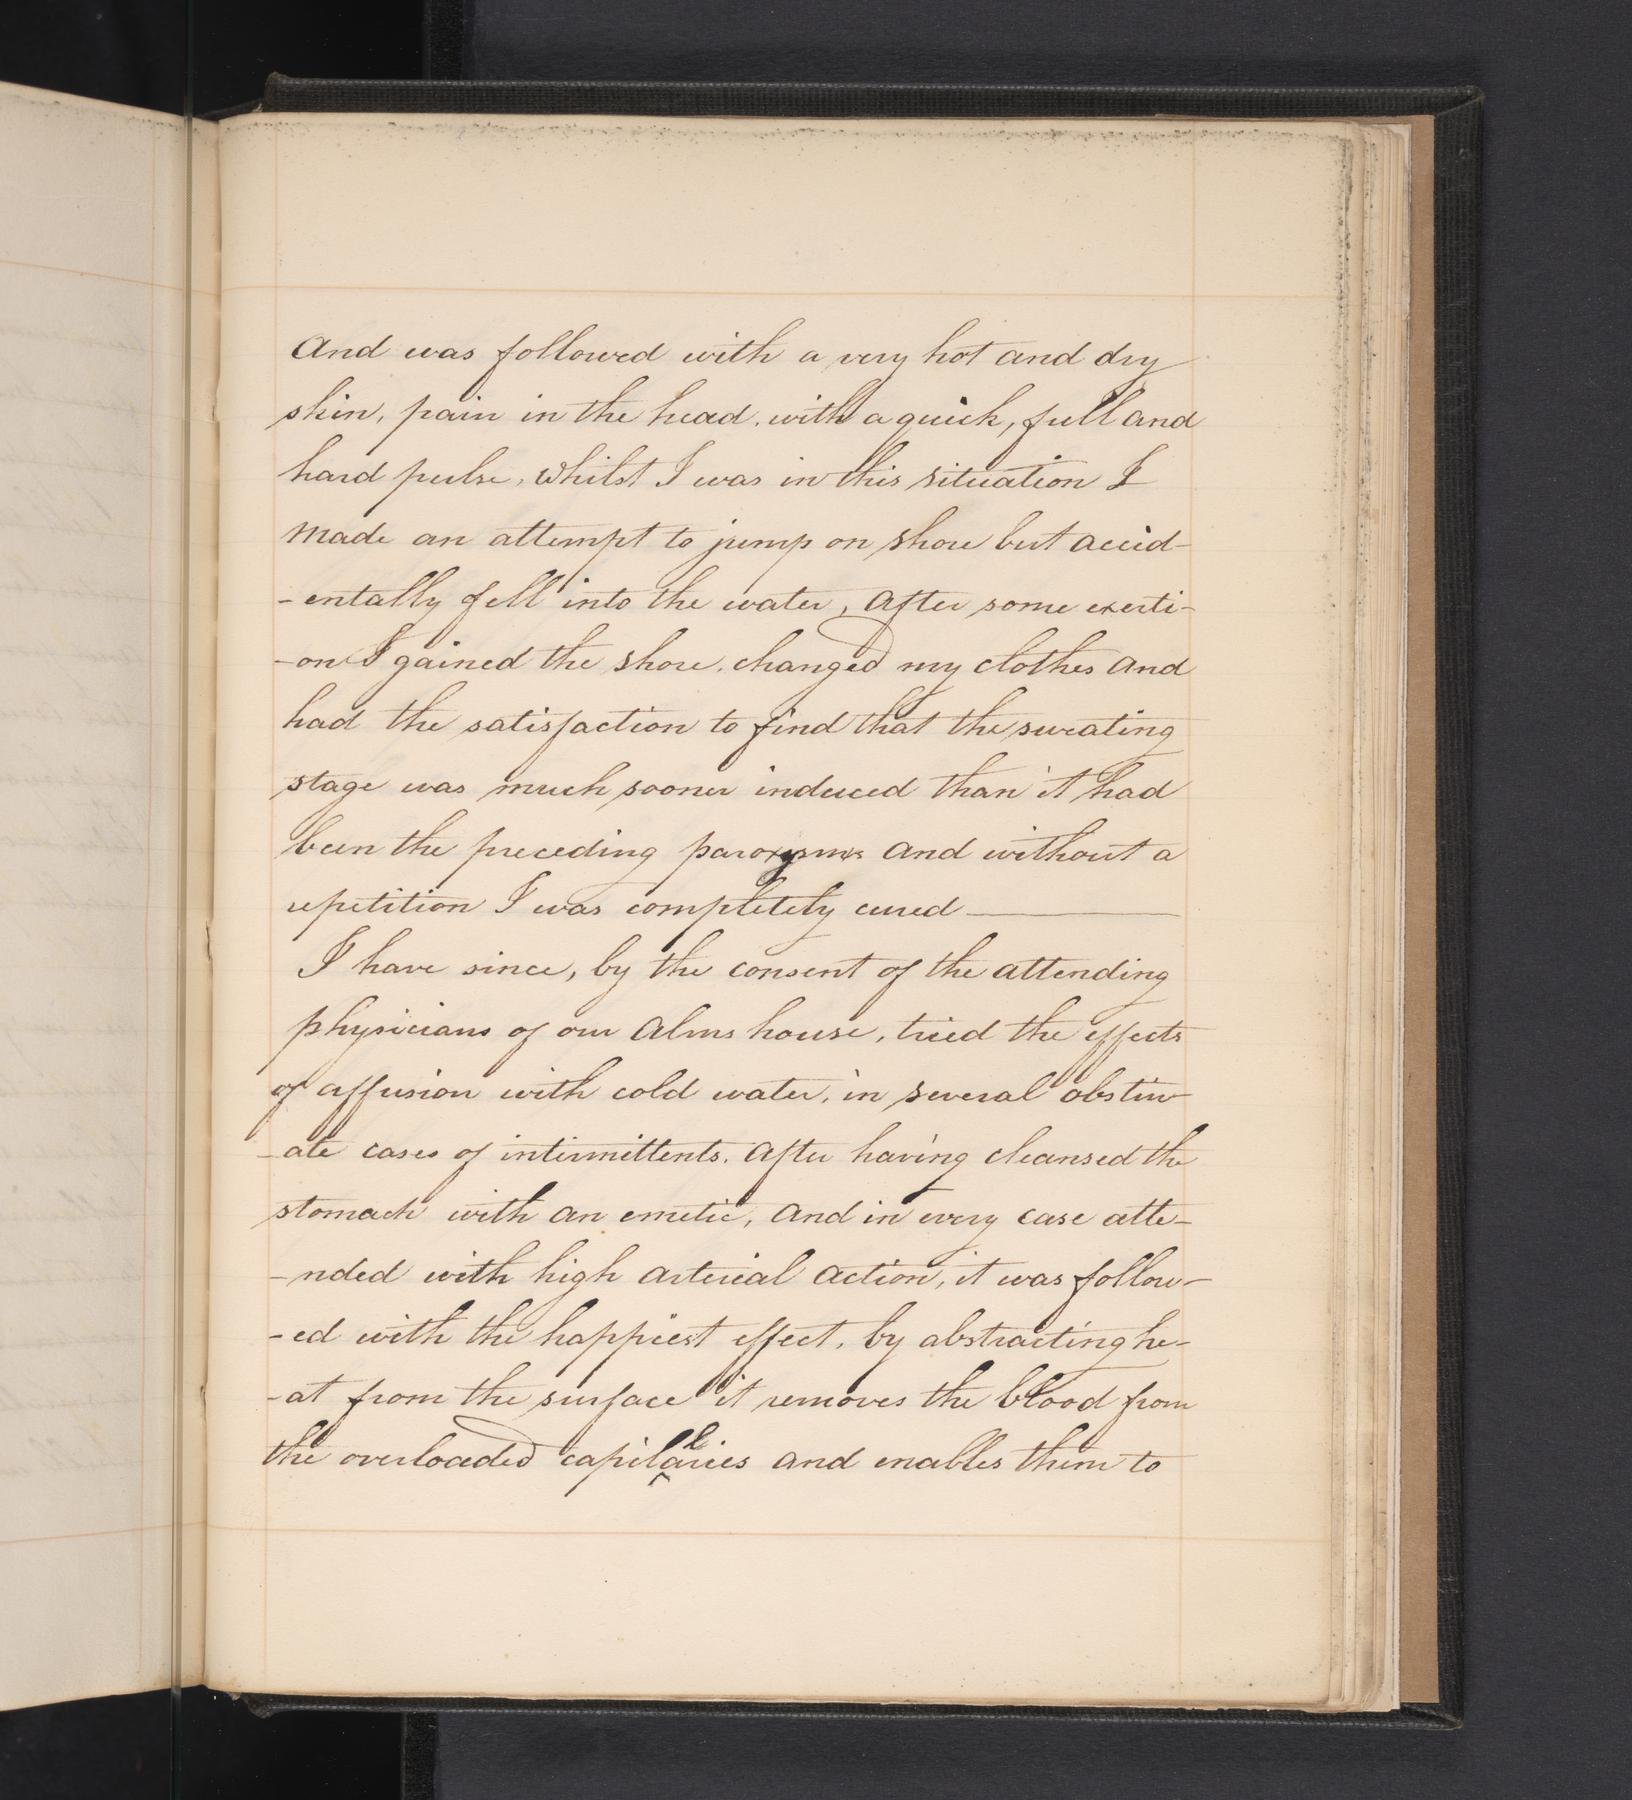 And was followed with a very hot and dry
skin, pain in the head, with a quick, full and
hard pulse, Whilst I was in this situation I
made an attempt to jump on shore but accid-
-entally fell into the water, After some exerti-
-on I gained the shore, changed my clothes and
had the satisfaction to find that the sweating
stage was much sooner induced than it had
been the preceding paroxysms and without a
repetition I was completely cured
I have since, by the consent of the attending
physicians of our Alms house, tried the effects
of affusion with cold water, in several obstin-
-ate cases of intermittents. After having cleansed the
stomach with an emetic, and in every case atte-
-nded with high arterial action, it was follow-
-ed with the happiest effect, by abstracting he-
-at from the surface it removes the blood from
the overloaded capillaries and enables them to